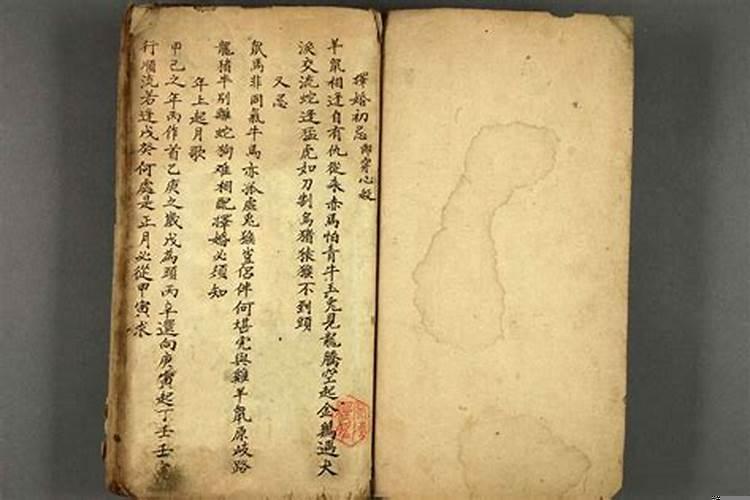 擇婚初忌 即穿心殺
羊鼠相逢自有仇從來赤馬怕青牛玉兔見龍騰空起金鷄遇犬
淚交流蛇逢猛虎如刀割烏猪猿猴不到頭
又忌
鼠馬非同氣牛馬亦孤虛兔猴豈侶伴何堪虎與雞羊鼠原歧路
龍猪平別離蛇狗难相配擇婚必須知
年上起月歌
甲己之年丙作首乙庚之歲戊為頭丙辛還向庚寅起丁壬壬寅
行順流若逢戊癸何處是正月必從甲寅求